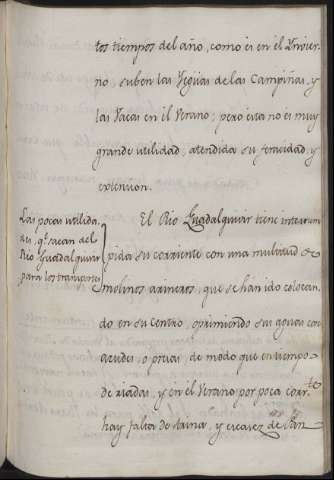 tos tiempos del año, como es en el Invier-
no, suben las Yeguas de las Campiñas, y
las Vacas en il Verano; pero esta no es muy
grande utilidad, atendida su feracidad, y
extension.
Las pocas utilida-
des, q.e sacan del
Rio Guadalquivir
para los
El Rio Guadalquivir tiene interrum-
pida su corriente con una multitud de
molinos arineros, que se han ido colocan-
do en su centro, oprimiendo sus aguas con
azudes, o presas, de modo que en tiempo
de riadas, y en el Verano por poca corr.te
hay falta de arina, y escasez de Pan